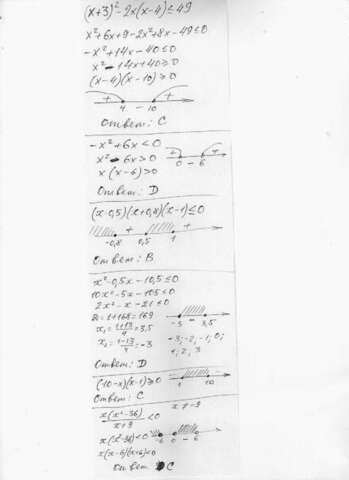 (x+3)² - 2x(x-4) ≤ 49
x² + 6x + 9 - 2x² + 8x - 49 ≤ 0
-x² + 14x - 40 ≤ 0
x² - 14x + 40 ≥ 0
(x-4)(x-10) ≥ 0
+ 4 - 10 +
Ответ: С
-x² + 6x < 0
x² - 6x > 0
x(x-6) > 0
+ 0 - 6 +
Ответ: D
(x-0,5)(x+0,8)(x-1) ≤ 0
-0,8 + 0,5 1 +
Ответ: В
x² - 0,5x - 10,5 ≤ 0
10x² - 5x - 105 ≤ 0
2x² - x - 21 ≤ 0
D = 1 + 168 = 169
x₁ = 1+13/4 = 3,5
x₂ = 1-13/4 = -3
-3 3,5
-3; -2; -1; 0;
1; 2; 3
Ответ: D
(10-x)(x-1) ≥ 0
1 10
Ответ: С
x(x²-36)/x+9 < 0
x ≠ -9
x(x²-36) < 0
-6 0 - 6
x(x-6)(x+6) < 0
Ответ: С